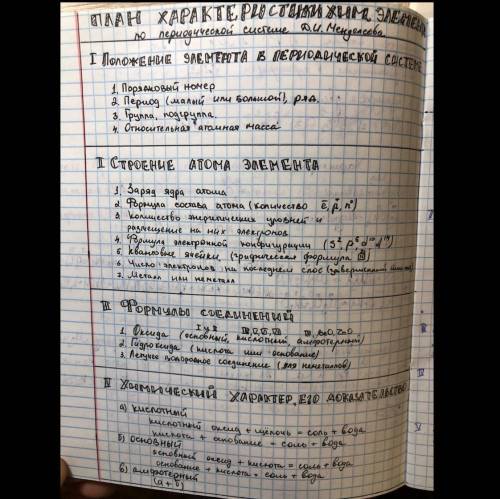 ПЛАН ХАРАКТЕРИСТИКИ ХИМ. ЭЛЕМЕН
по периодической системе Д.И. Менделеева
I ПОЛОЖЕНИЕ ЭЛЕМЕНТА В ПЕРИОДИЧЕСКОЙ СИСТЕМЕ
1. Порядковый номер
2. Период (малый или большой), ряд.
3. Группа, подгруппа.
4. Относительная атомная масса
II СТРОЕНИЕ АТОМА ЭЛЕМЕНТА
1. Заряд ядра атома
2. Формула состава атома (количество ē, p⁺, n⁰)
3. Количество энергетических уровней и
размещение на них электронов
4. Формула электронной конфигурации (s² p⁶ d¹⁰ f¹⁴)
5. Квантовые ячейки (графическая формула
6. Число электронов на последнем слое (завершенный
7. Металл или неметалл
III ФОРМУЛЫ СОЕДИНЕНИЙ
I и II
1. Оксида (основный, кислотный, амфотерный)
2. Гидроксида (кислота или основание)
3. Летучее водородное соединение (для неметаллов)
IV ХИМИЧЕСКИЙ ХАРАКТЕР, ЕГО ДОКАЗАТЕЛЬСТВО
а) кислотный
кислотный оксид + щелочь = соль + вода
кислота + основание = соль + вода
б) основный
основный оксид + кислота = соль + вода
основание + кислота = соль + вода
в) амфотерный
(а + б)